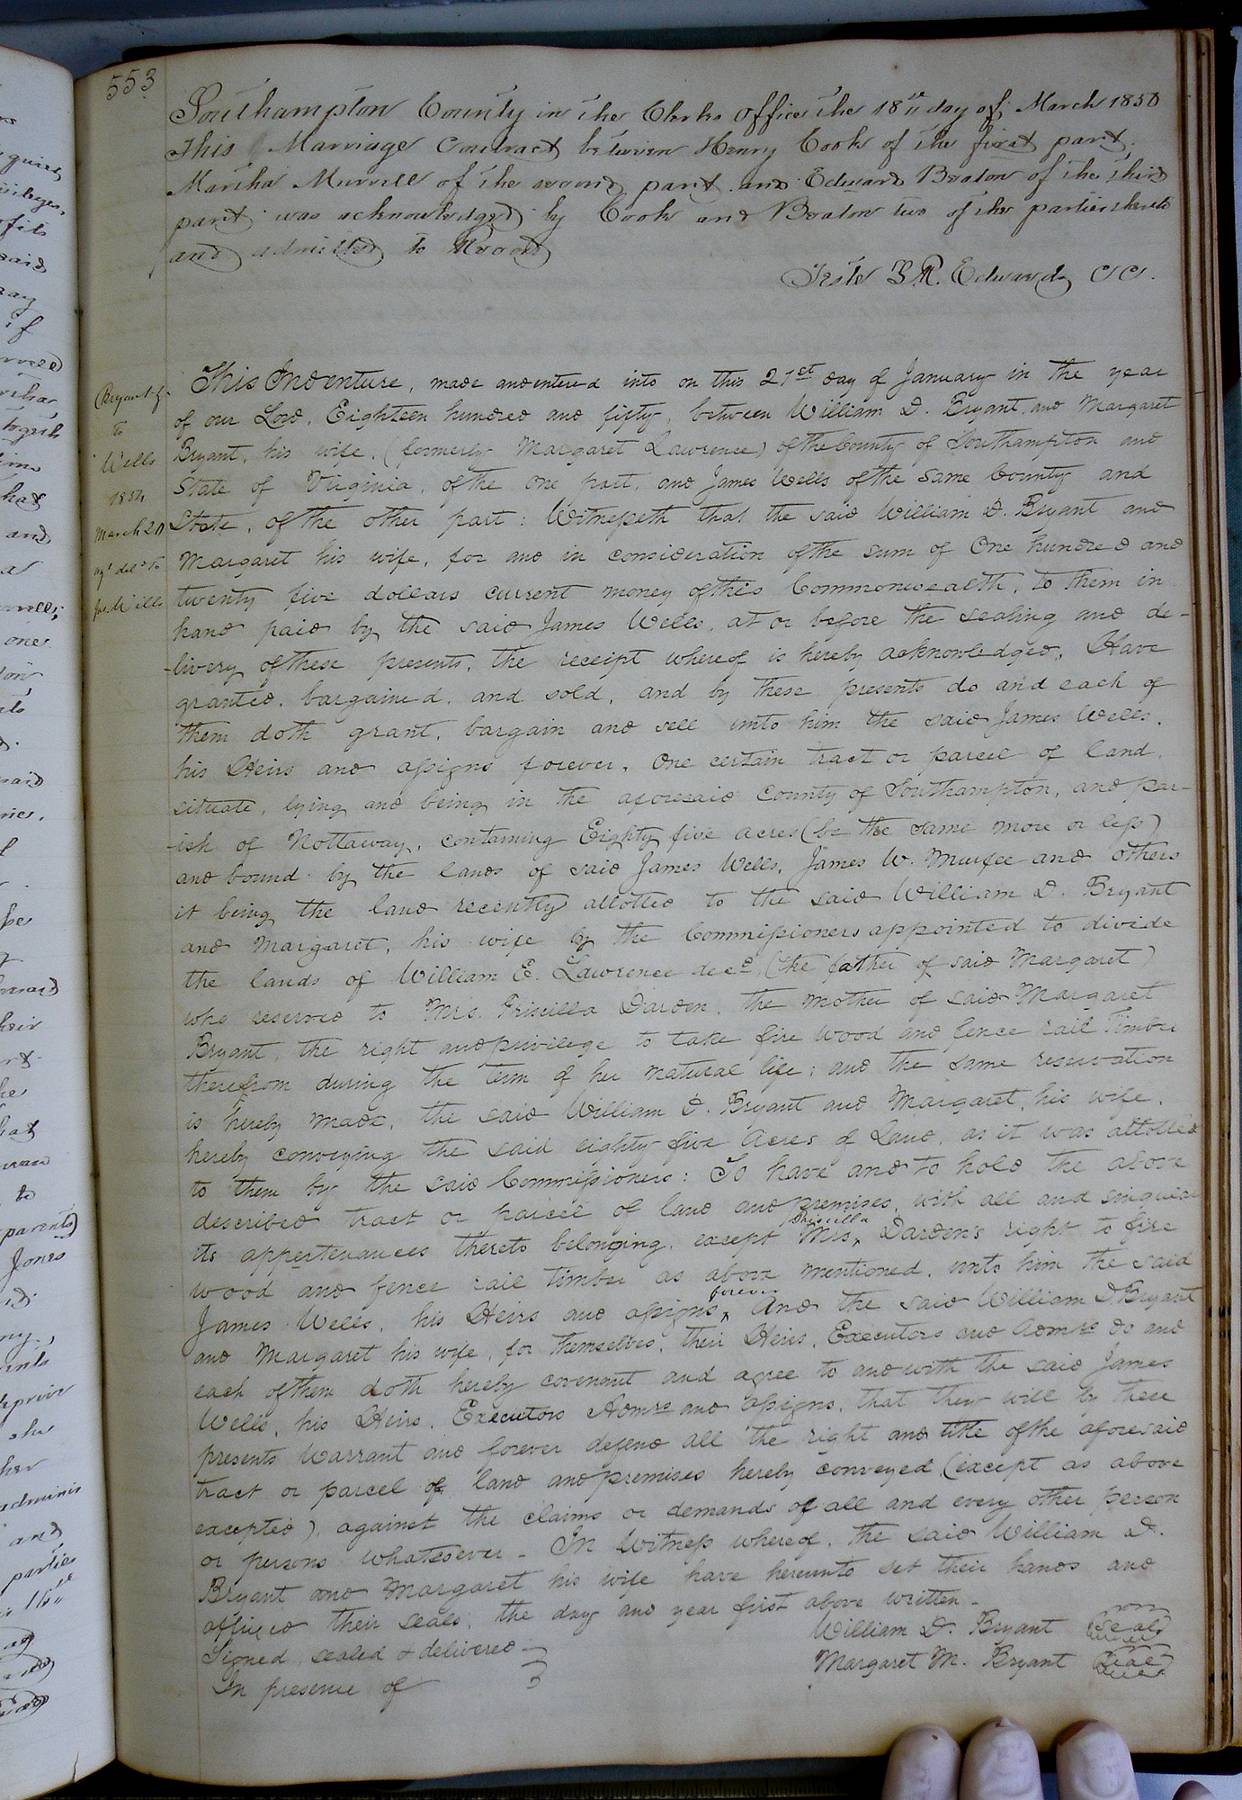 553
Southampton County in the Clerks Office the 18th day of March 1850
This Marriage Contract between Henry Cook of the first part,
Martha Murrell of the second part and Edward Beaton of the third
part was acknowledged by Cook and Beaton two of the parties thereto
and admitted to Record
Teste L. R. Edwards CC.
Bryant &
to
Wells
1854
March 20
del'd to
Jas. Wells
This Indenture, made and entered into on this 21st day of January in the year
of our Lord, Eighteen hundred and fifty, between William D. Bryant, and Margaret
Bryant, his wife, (formerly Margaret Lawrence) of the County of Southampton and
State of Virginia, of the one part, and James Wells of the same County and
State, of the other part: Witnesseth that the said William D. Bryant and
Margaret his wife, for and in consideration of the sum of One hundred and
twenty five dollars current money of this Commonwealth, to them in
hand paid by the said James Wells, at or before the sealing and de-
-livery of these presents, the receipt whereof is hereby acknowledged, Have
granted, bargained, and sold, and by these presents do and each of
them doth grant, bargain and sell unto him the said James Wells,
his Heirs and assigns forever, One certain tract or parcel of land,
situate, lying and being in the aforesaid County of Southampton, and par-
-ish of Nottoway, containing Eighty five acres (be the same more or less)
and bound by the lands of said James Wells, James W. Murfee and others
it being the land recently allotted to the said William D. Bryant
and Margaret, his wife by the Commissioners appointed to divide
the lands of William E. Lawrence decd. (the father of said Margaret)
who reserved to Mrs. Priscilla Darden, the mother of said Margaret
Bryant, the right and privilege to take fire wood and fence rail Timber
therefrom during the term of her natural life; and the same reservation
is hereby made, the said William D. Bryant and Margaret, his wife,
hereby conveying the said eighty five Acres of Land, as it was allotted
to them by the said Commissioners: To have and to hold the above
described tract or parcel of land and premises, with all and singular
its appertenances thereto belonging, except Mrs. Priscilla Darden's right to fire
wood and fence rail timber as above mentioned, unto him the said
James Wells, his Heirs and assigns forever. And the said William D. Bryant
and Margaret his wife, for themselves, their Heirs, Executors and Admrs do and
each of them doth hereby covenant and agree to and with the said James
Wells, his Heirs, Executors Admrs and assigns, that they will by these
presents Warrant and forever defend all the right and title of the aforesaid
tract or parcel of land and premises hereby conveyed (except as above
excepted), against the claims or demands of all and every other person
or persons whatsoever - In Witness whereof, the said William D.
Bryant and Margaret his wife have hereunto set their hands and
affixed their seals, the day and year first above written -
Signed, sealed & delivered
In presence of
William D. Bryant Seal
Margaret M. Bryant Seal